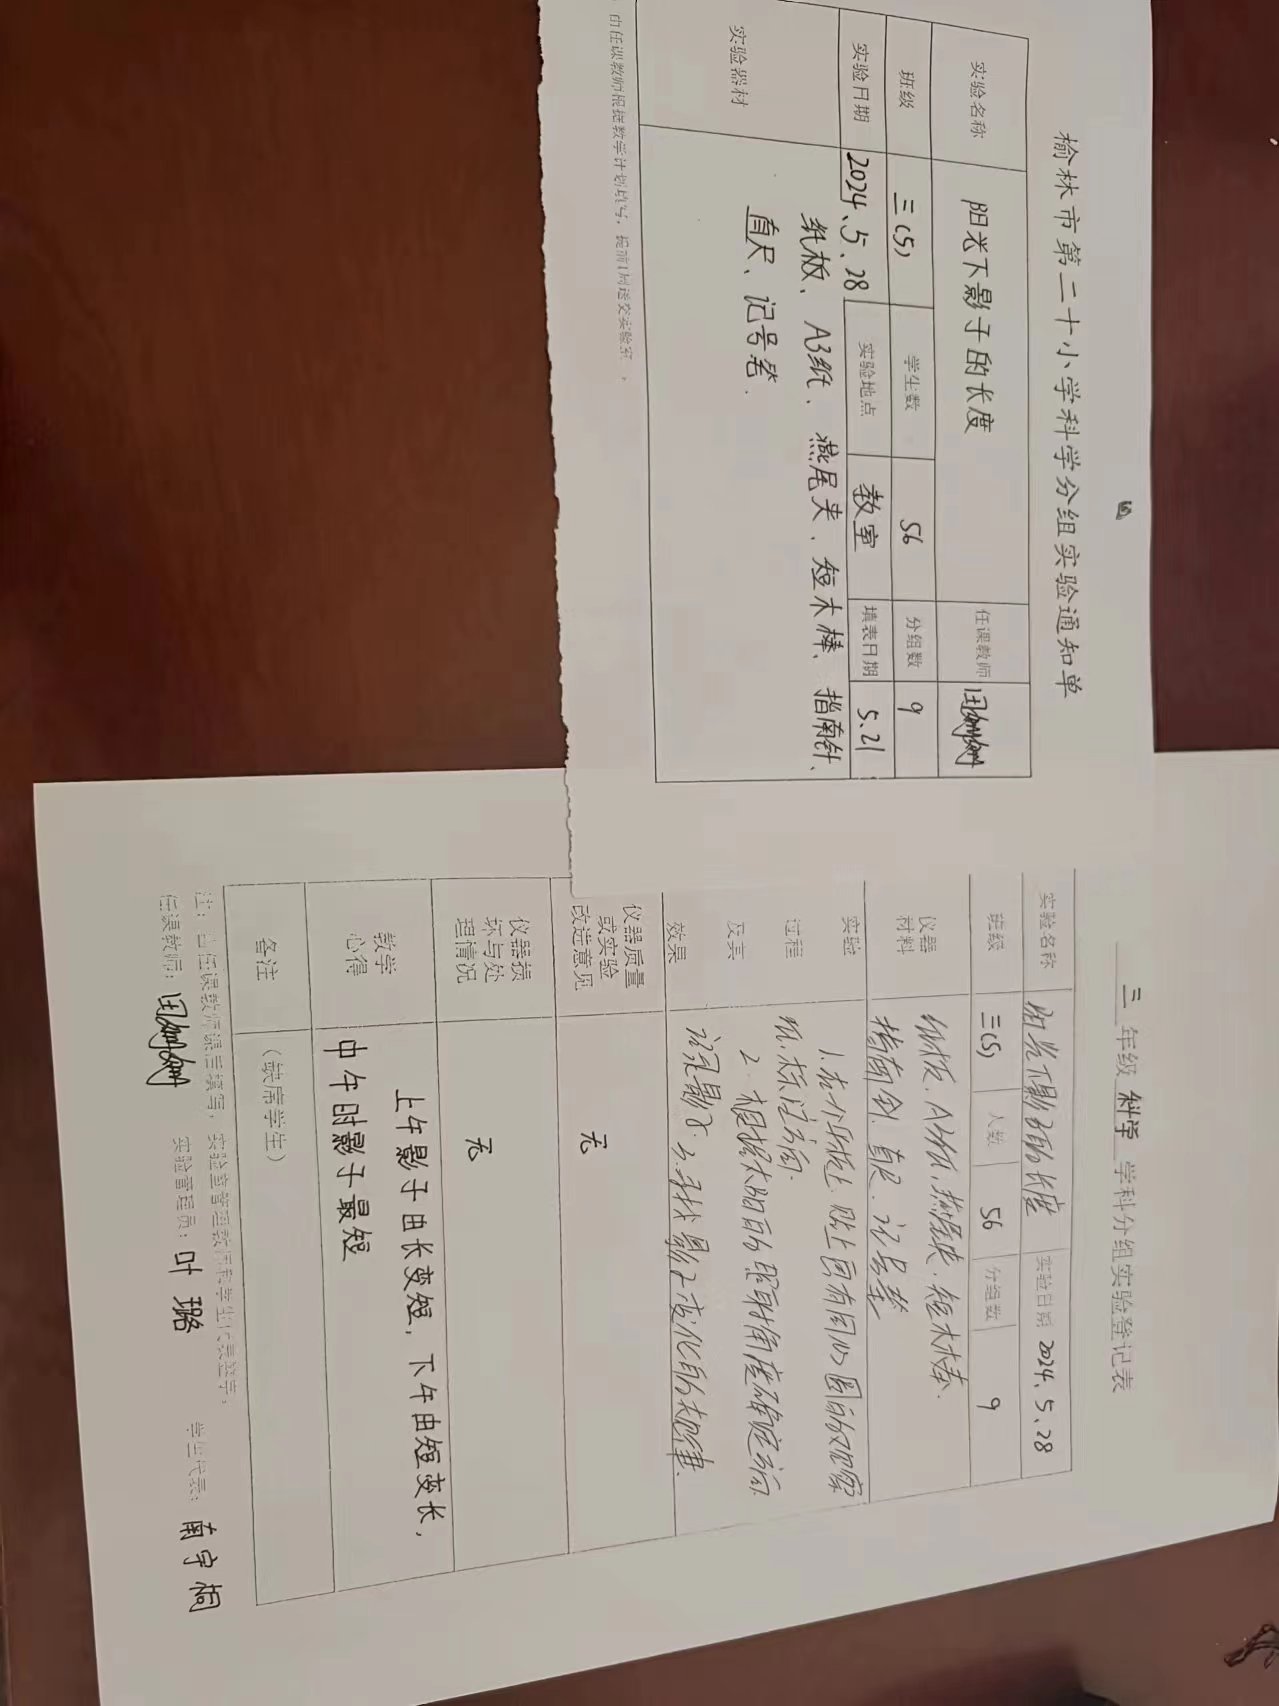 榆林市第二十小学科学分组实验通知单
实验名称 阳光下影子的长度 任课教师
班级 三(5) 学生数 56 分组数 9
实验日期 2024.5.28 实验地点 教室 填表日期 5.21
实验器材 纸板、A3纸、燕尾夹、短木棒、指南针、
直尺、记号笔.
的任课教师根据教学计划填写，提前1周送交实验室。
三 年级 科学 学科分组实验登记表
实验名称 阳光下影子的长度 实验日期 2024.5.28
班级 三(5) 人数 56 分组数 9
仪器材料 纸板、A3纸、燕尾夹、短木棒.
指南针、直尺、记号笔
实验过程及其效果 1.在介纸板上贴上画有同心圆的观察
纸.标注方向.
2.根据太阳的照射角度确定方向
记录影子.3.寻找影子变化的规律.
仪器质量或实验改进意见 无
仪器损坏与处理情况 无
教学心得 上午影子由长变短，下午由短变长，
中午时影子最短
备注 (缺席学生)
注：由任课教师课后填写，实验室管理教师和学生代表签字。
任课教师： 实验管理员：叶璐 学生代表：南宇桐